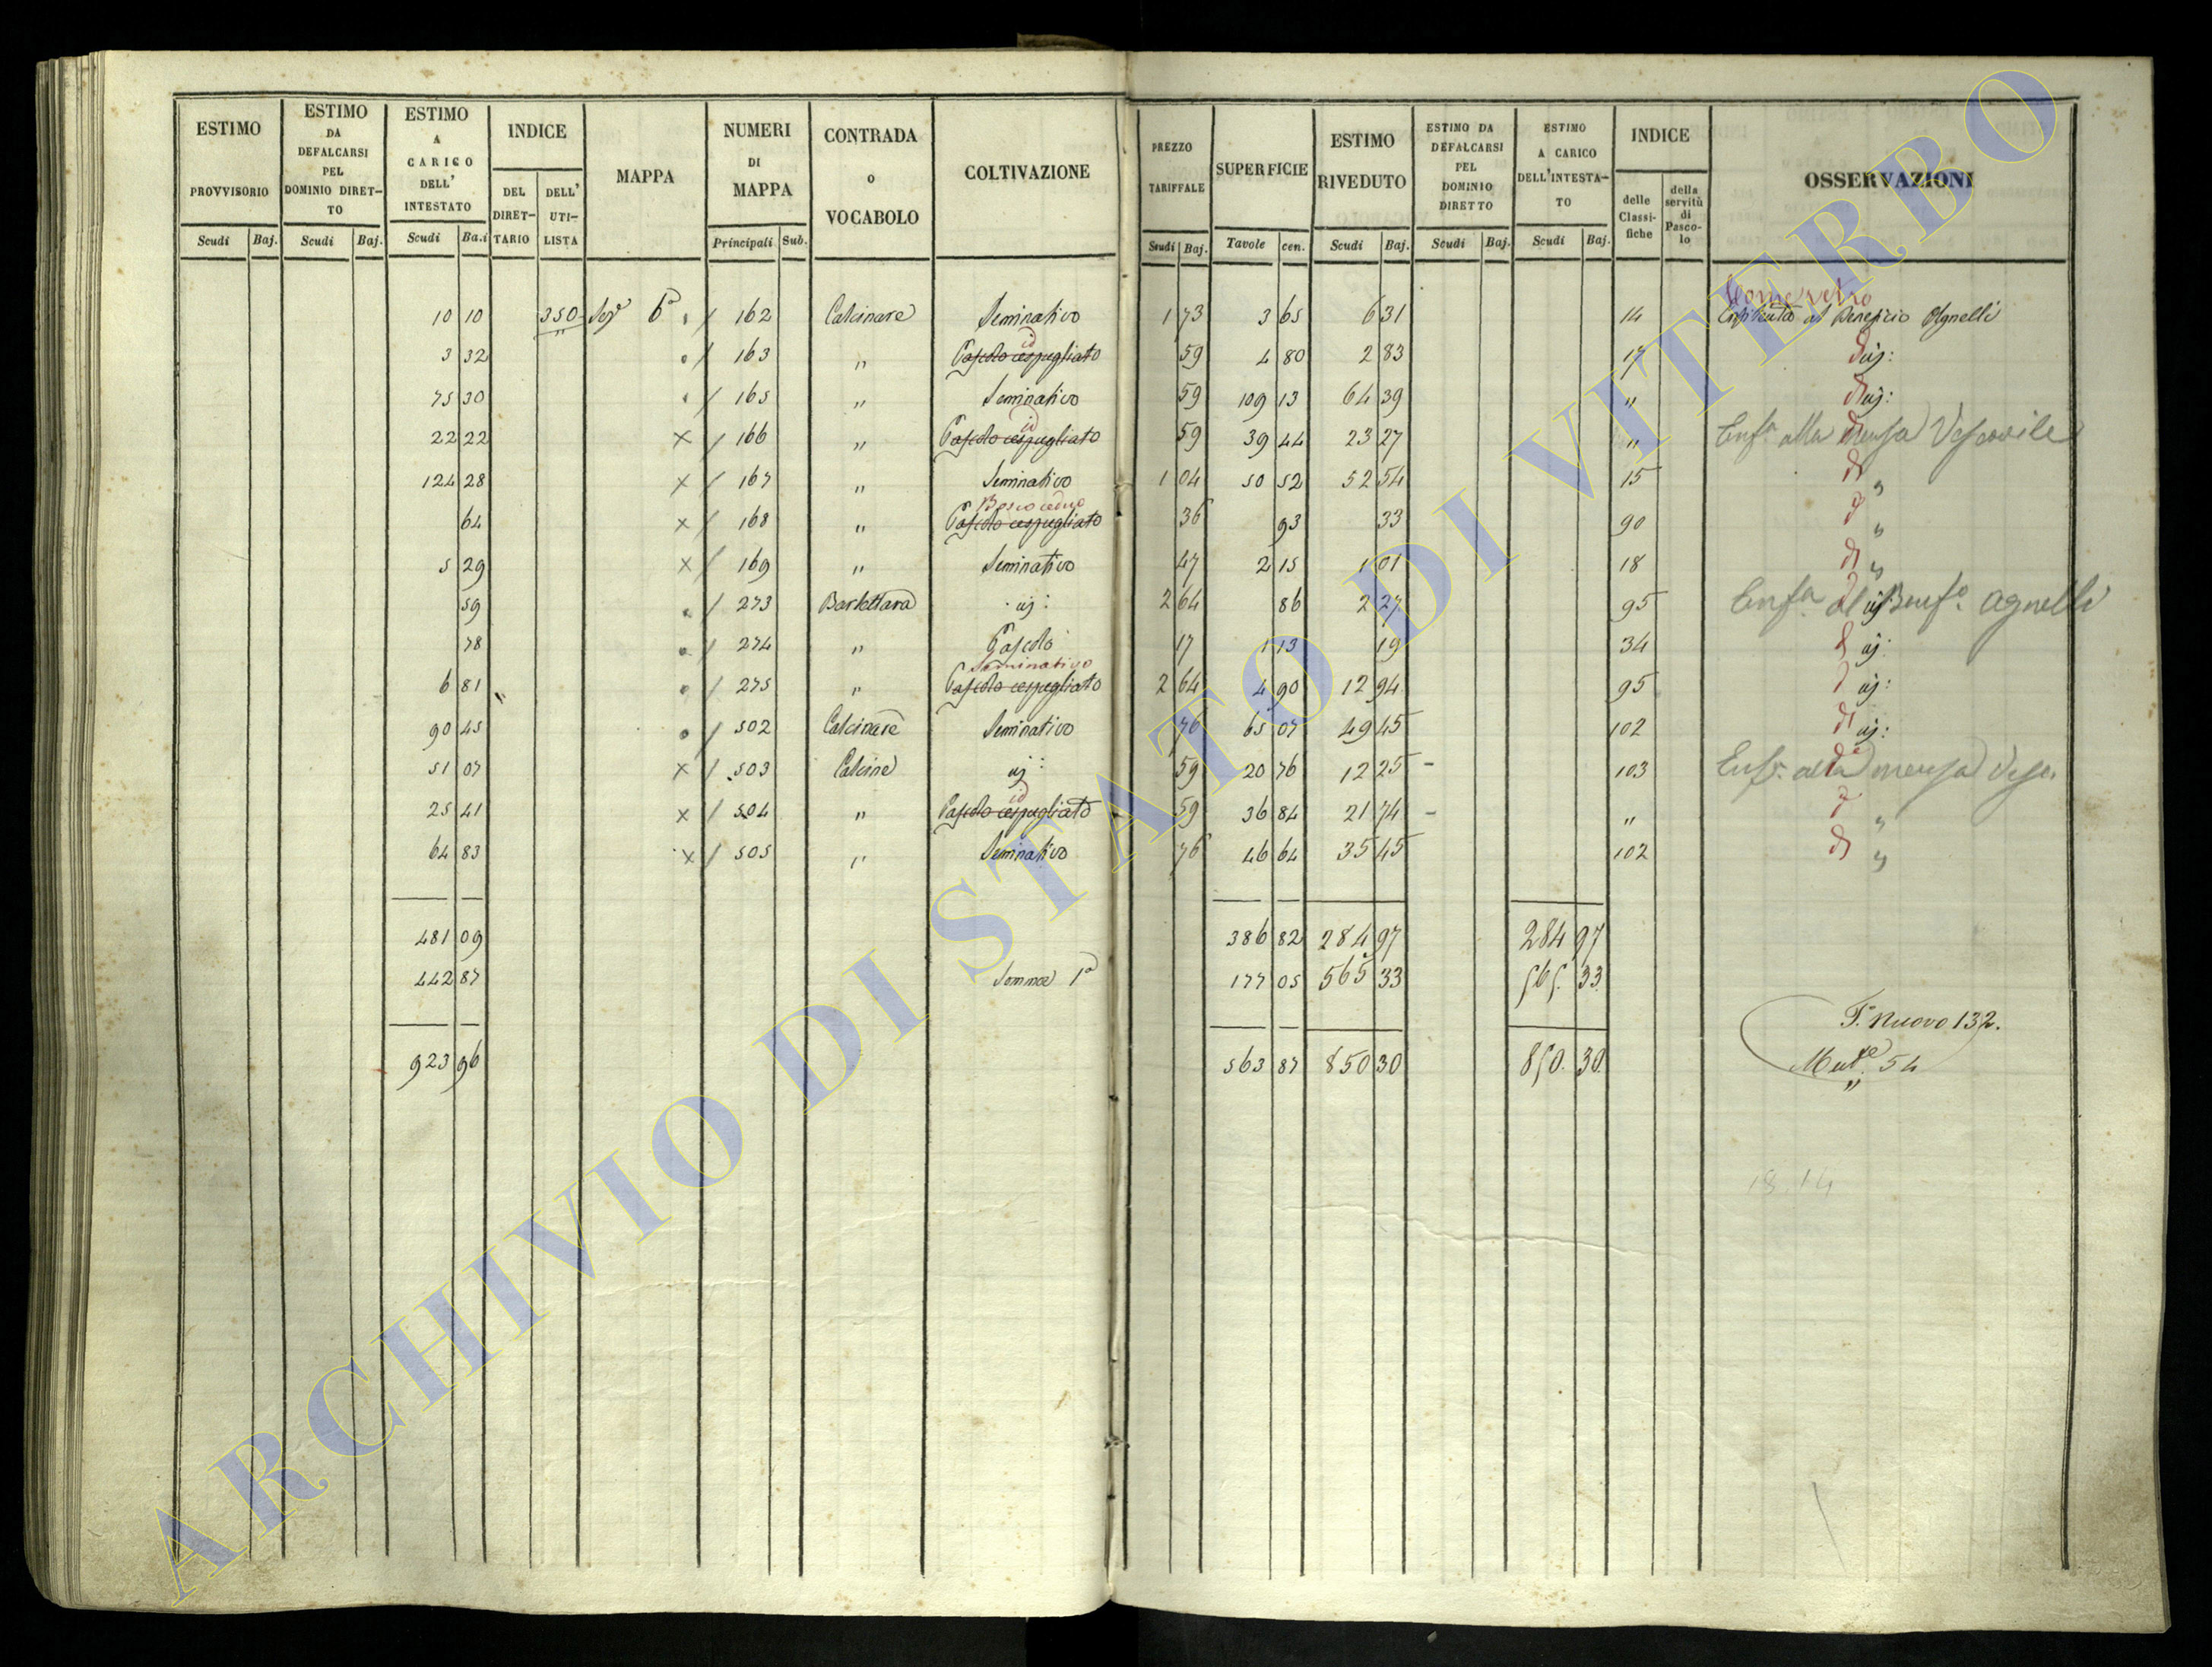 ESTIMO PROVVISORIO Scudi Baj.
ESTIMO DA DEFALCARSI PEL DOMINIO DIRETTO Scudi Baj.
ESTIMO A CARICO DELL' INTESTATO Scudi Ba.i
INDICE DEL DIRETTARIO DELL' UTILISTA
MAPPA
NUMERI DI MAPPA Principali Sub.
CONTRADA o VOCABOLO
COLTIVAZIONE
PREZZO TARIFFALE Scudi Baj.
SUPERFICIE Tavole cen.
ESTIMO RIVEDUTO Scudi Baj.
ESTIMO DA DEFALCARSI PEL DOMINIO DIRETTO Scudi Baj.
ESTIMO A CARICO DELL'INTESTATO Scudi Baj.
INDICE delle Classifiche della servitù di Pascolo
OSSERVAZIONI
Come retro
10 10 350 Sez.e 6a / 162 Calcinare Seminativo 1 73 3 65 6 31 14 Enfiteuta al Benefizio Agnelli
id
3 32 / 163 " Pascolo cespugliato 59 4 80 2 83 17 di:
75 30 / 165 " Seminativo 59 109 13 64 39 " di:
id
22 22 × / 166 " Pascolo cespugliato 59 39 44 23 27 " Enf.a alla mensa Vescovile
124 28 × / 167 " Seminativo 1 04 50 52 52 54 15 "
Bosco ceduo
64 × / 168 " Pascolo cespugliato 36 93 33 90 "
5 29 × / 169 " Seminativo 47 2 15 1 01 18 "
59 / 273 Barlettara di: 2 64 86 2 27 95 Enf.a al Benf.o Agnelli
78 / 274 " Pascolo 17 1 13 19 34 di:
Seminativo
6 81 / 275 " Pascolo cespugliato 2 64 4 90 12 94 95 di:
90 45 / 502 Calcinare Seminativo 76 65 07 49 45 102 di:
51 07 × / 503 Calcine di: 59 20 76 12 25 - 103 Enf.a alla mensa Vesc.
id
25 41 × / 504 " Pascolo cespugliato 59 36 84 21 74 - " "
64 83 × / 505 " Seminativo 76 46 64 35 45 102 "
481 09 386 82 284 97 284 97
442 87 Somma 1a 177 05 565 33 565. 33.
T. Nuovo 132.
923 96 563 87 850 30 850. 30.
Mut.e 54
18.14
ARCHIVIO DI STATO DI VITERBO